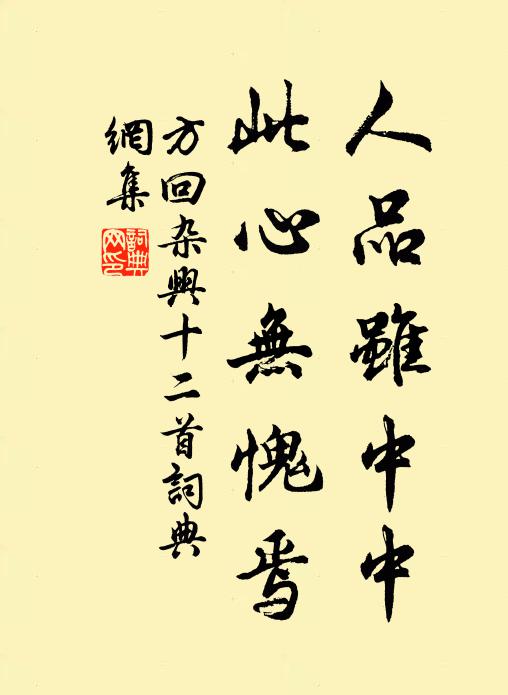 人品雖中中
此心無愧焉
方回杂興十二首詞典
網集
詞典
网印